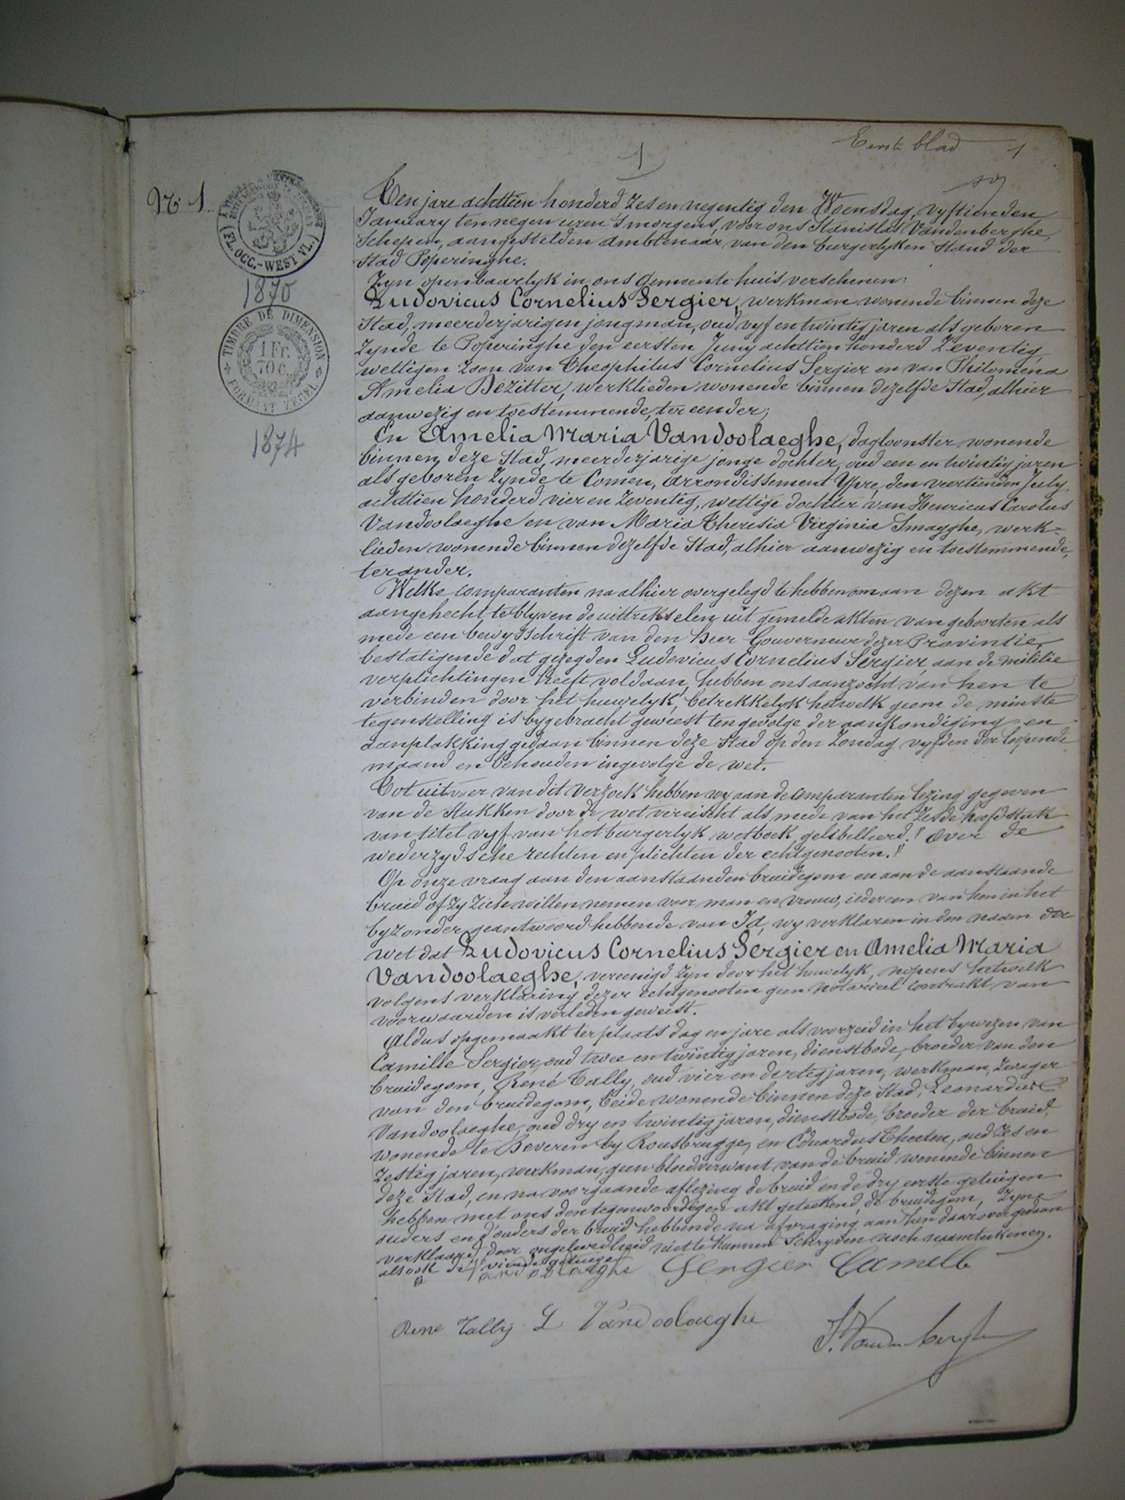 Eerste blad 1
1
No 1.
(FL. OCC.-WEST VL.)
1870
TIMBRE DE DIMENSION
1 FR.
70 C.
FORMAAT ZEGEL
1874
Ten jare achttien honderd zes en negentig den Woensdag, vyftienden
January ten negen uren 's morgens, voor ons Stanislas Vandenberghe,
Schepen, aangestelden ambtenaar, van den burgerlyken stand der
Stad Poperinghe.
Zyn openbaarlyk in ons gemeente huis verschenen
Ludovicus Cornelius Sergier, werkman wonende binnen deze
Stad, meerderjarigen jongman, oud vyf en twintig jaren als geboren
zynde te Poperinghe den eersten Juny achttien honderd zeventig,
wettigen zoon van Theophilus Cornelius Sergier en van Philomena
Amelia Dezitter, werklieden wonende binnen dezelfde Stad, alhier
aanwezig en toestemmende, ter eender;
En Amelia Maria Vandoolaeghe, dagloonster wonende
binnen deze Stad, meerderjarige jonge dochter, oud een en twintig jaren
als geboren zynde te Comen, arrondissement Ypre, den veertienden July
achttien honderd vier en zeventig, wettige dochter van Henricus Carolus
Vandoolaeghe en van Maria Theresia Virginia Smagghe, werk=
lieden wonende binnen dezelfde Stad, alhier aanwezig en toestemmende,
ter ander.
Welke comparanten na alhier overgelegd te hebben om aan dezen akt
aangehecht te blyven de uittrekselen uit gemelde akten van geboorten als
mede een bewysschrift van den heer Gouverneur dezer Provintie,
bestatigende dat gezegden Ludovicus Cornelius Sergier, aan de militie
verplichtingen heeft voldaan, hebben ons aanzocht van hen te
verbinden door het huwelyk, betrekkelyk hetwelk geene de minste
tegenstelling is bygebracht geweest ten gevolge der aankondiging en
aanplakking gedaan binnen deze Stad op den Zondag vyfden der loopende
maand en behouden ingevolge de wet.
Tot uitvoer van dit verzoek hebben wy aan de comparanten lezing gegeven
van de stukken door de wet vereischt als mede van het zesde hoofdstuk
van titel vyf van het burgerlyk wetboek getitelleerd: " over de
wederzydsche rechten en plichten der echtgenooten."
Op onze vraag aan den aanstaanden bruidegom en aan de aanstaande
bruid of zy zich willen nemen voor man en vrouw, iedereen van hen in het
byzonder geantwoord hebbende van Ja, wy verklaren in den naam der
wet dat Ludovicus Cornelius Sergier en Amelia Maria
Vandoolaeghe, vereenigd zyn door het huwelyk, nopens hetwelk
volgens verklaring dezer echtgenooten geen notarieel contrakt van
voorwaarden is verleden geweest.
Aldus opgemaakt ter plaats dag en jare als voorzeid in het bywezen van
Camille Sergier, oud twee en twintig jaren, dienstbode, broeder van den
bruidegom, René Tally, oud vier en dertig jaren, werkman, zwager
van den bruidegom, beide wonende binnen deze Stad, Leonardus
Vandoolaeghe, oud dry en twintig jaren, dienstbode, broeder der bruid,
wonende te Beveren by Rousbrugge, en Eduardus Theeten, oud zes en
zestig jaren, werkman, geen bloedverwant van de bruid wonende binnen
deze Stad, en na voorgaande aflezing de bruid en de dry eerste getuigen
hebben met ons den tegenwoordigen akt geteekend, de bruidegom, zyne
ouders en d'ouders der bruid hebbende na afvraging aan hen daarover gedaan
verklaard door ongeleerdheid niet te kunnen schryven noch naamteekenen,
alsook de vierde getuige.
Vandoolaeghe Sergier Camille
Rene Tally L Vandoolaeghe
S. Vandenberghe